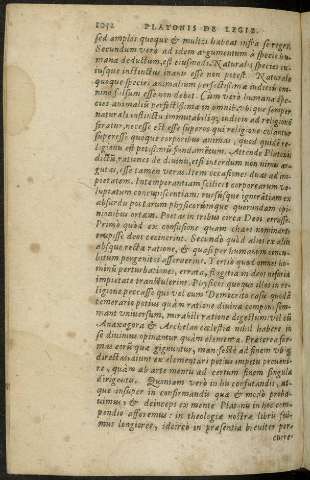 1052 PLATONIS DE LEGIB.
sed amplos quoque & multi habeat infra se reges.
Secundum verò ad idem argumentum à specie hu
mana deductum, est eiusmodi. Naturalis speciei cu
iusque instinctus inanis esse non potest. Naturale
quoque speciei animalium perfectissimæ iudicium om
nino falsum esse non debet. Cùm verò humana spe
cies animaliũ perfectissima in omnib. vbique semper
naturali instinctu immutabilíque iudicio ad religionẽ
feratur, necesse est esse superos qui religione colantur
superesse quoque corporibus animas, quod quidẽ re-
ligionis est potissimũ fundamentum. Attende Platonis
dictũ rationes de diuinis, etsi interdum non nimis ar
gutas, esse tamen veras. Item occasiones duas ad im-
pietatem. Intemperantiam scilicet corporearum vo-
luptatum concupiscentiam: rursusque ignorantiam ex
absurdis poetarum physicorúmque quorundam opi
nionibus ortam. Poetas in tribus circa Deos errasse.
Primò quòd ex confusione quam chaos nominant
erupisse deos cecinerint. Secundò quòd alios ex aliis
absque recta ratione, & quasi per humanum concu-
bitum progenitos asseruerint. Tertiò quòd omnes ho-
minũ perturbationes, errata, flagitia in deos nefaria
impietate transtulerint. Physicos quoque illos in re-
ligione peccasse qui vel cum Democrito casu quodã
temerario potius quàm ratione diuina componi, fir-
mant vniuersum, mirabili ratione digestum: vel cũ
Anaxagora & Archelao cælestia nihil habere in
se diuinius opinantur quàm elementa. Præterea for-
mas eorũ quæ gignuntur, manifestè ad finem vbiq;
directas aiunt ex elementari potius impetu proueni-
re, quàm ab arte mentis ad certum finem singula
dirigentis. Quoniam verò in his confutandis, at-
que insuper in confirmandis quæ & modò proba-
uimus, & deinceps ex mente Platonis in hoc com-
pendio afferemus: in theologiæ nostræ libris sui-
mus longiores, idcirco in præsentia breuiter per-
curre-